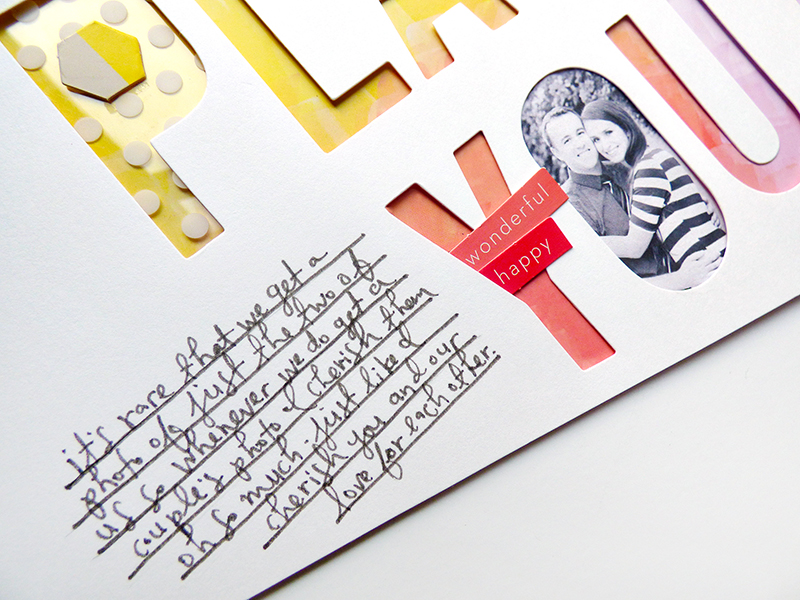 PLA
YOU
wonderful
happy
it's rare that we get a
photo of just the two of
us so whenever we do get a
couple's photo I cherish them
oh so much. just like I
cherish you and our
love for each other.